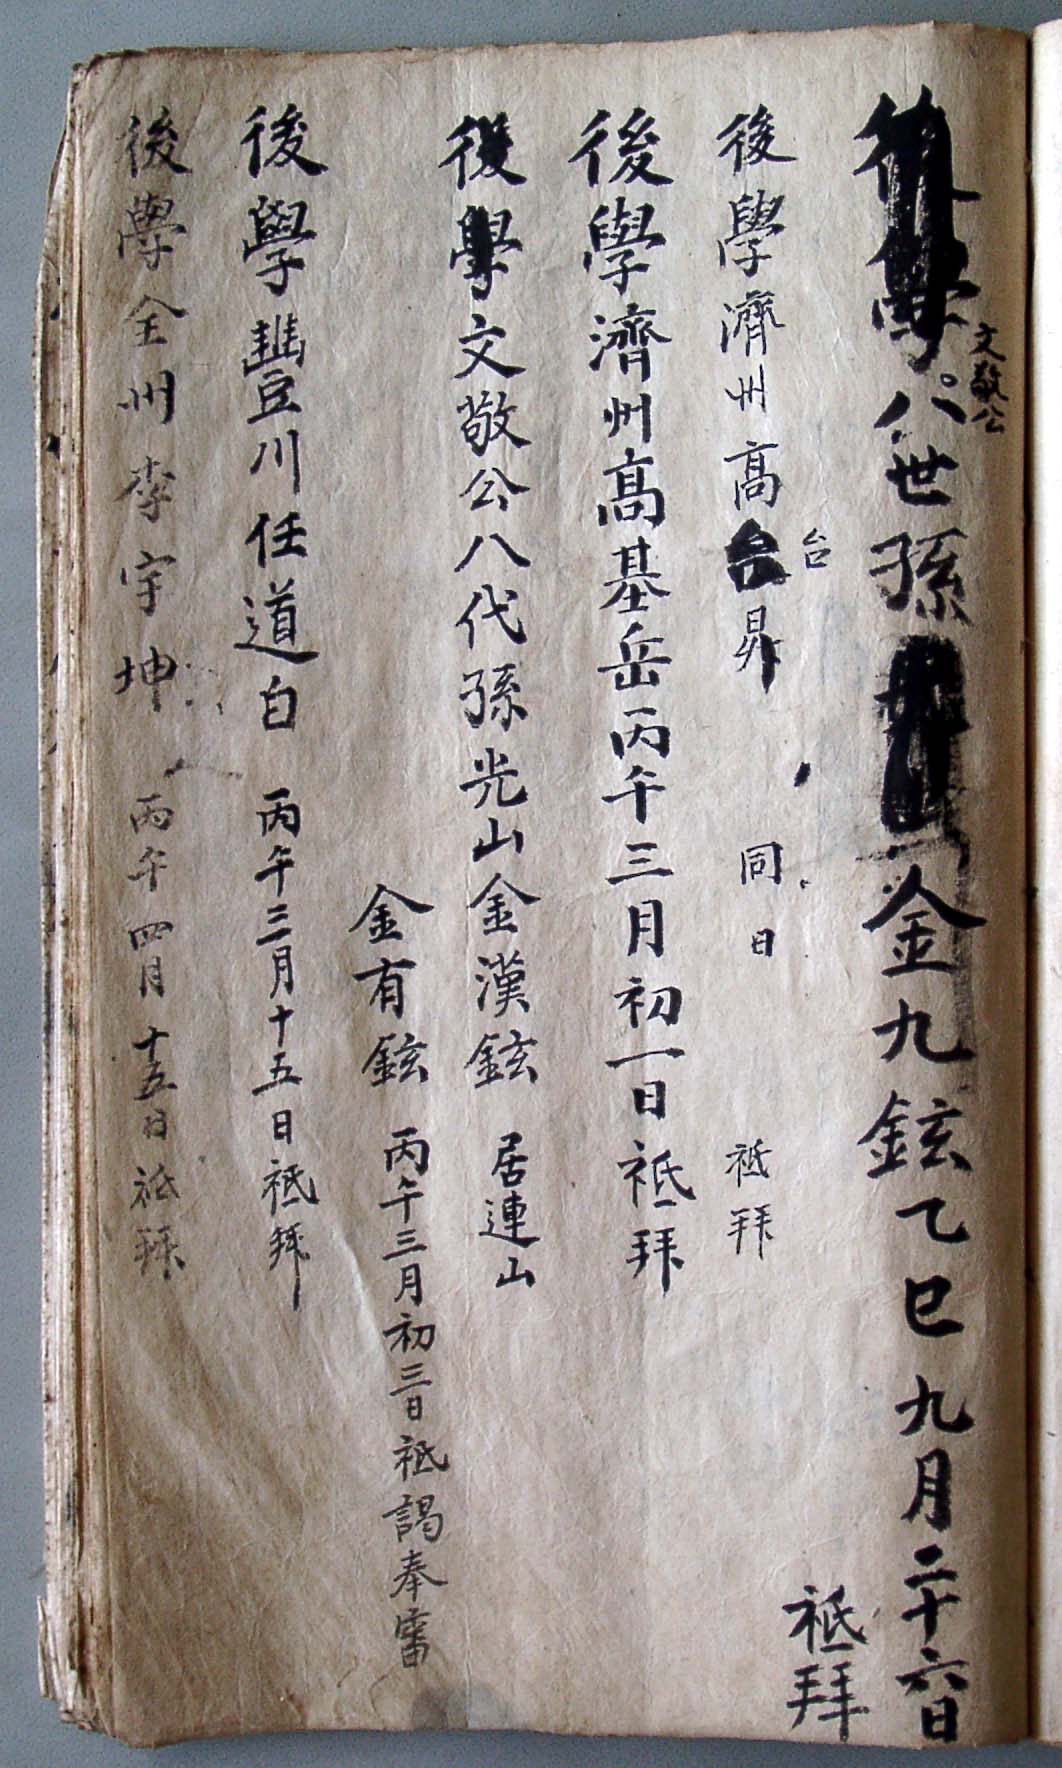 後學文敬公八世孫金九鉉乙巳九月二十六日
祗拜
後學濟州高台昇同日祗拜
後學濟州高基岳丙午三月初一日祗拜
後學文敬公八代孫光山金漢鉉居連山
金有鉉丙午三月初三日祗謁奉審
後學豐川任道白丙午三月十五日祗拜
後學全州李宇坤丙午四月十五日祗拜